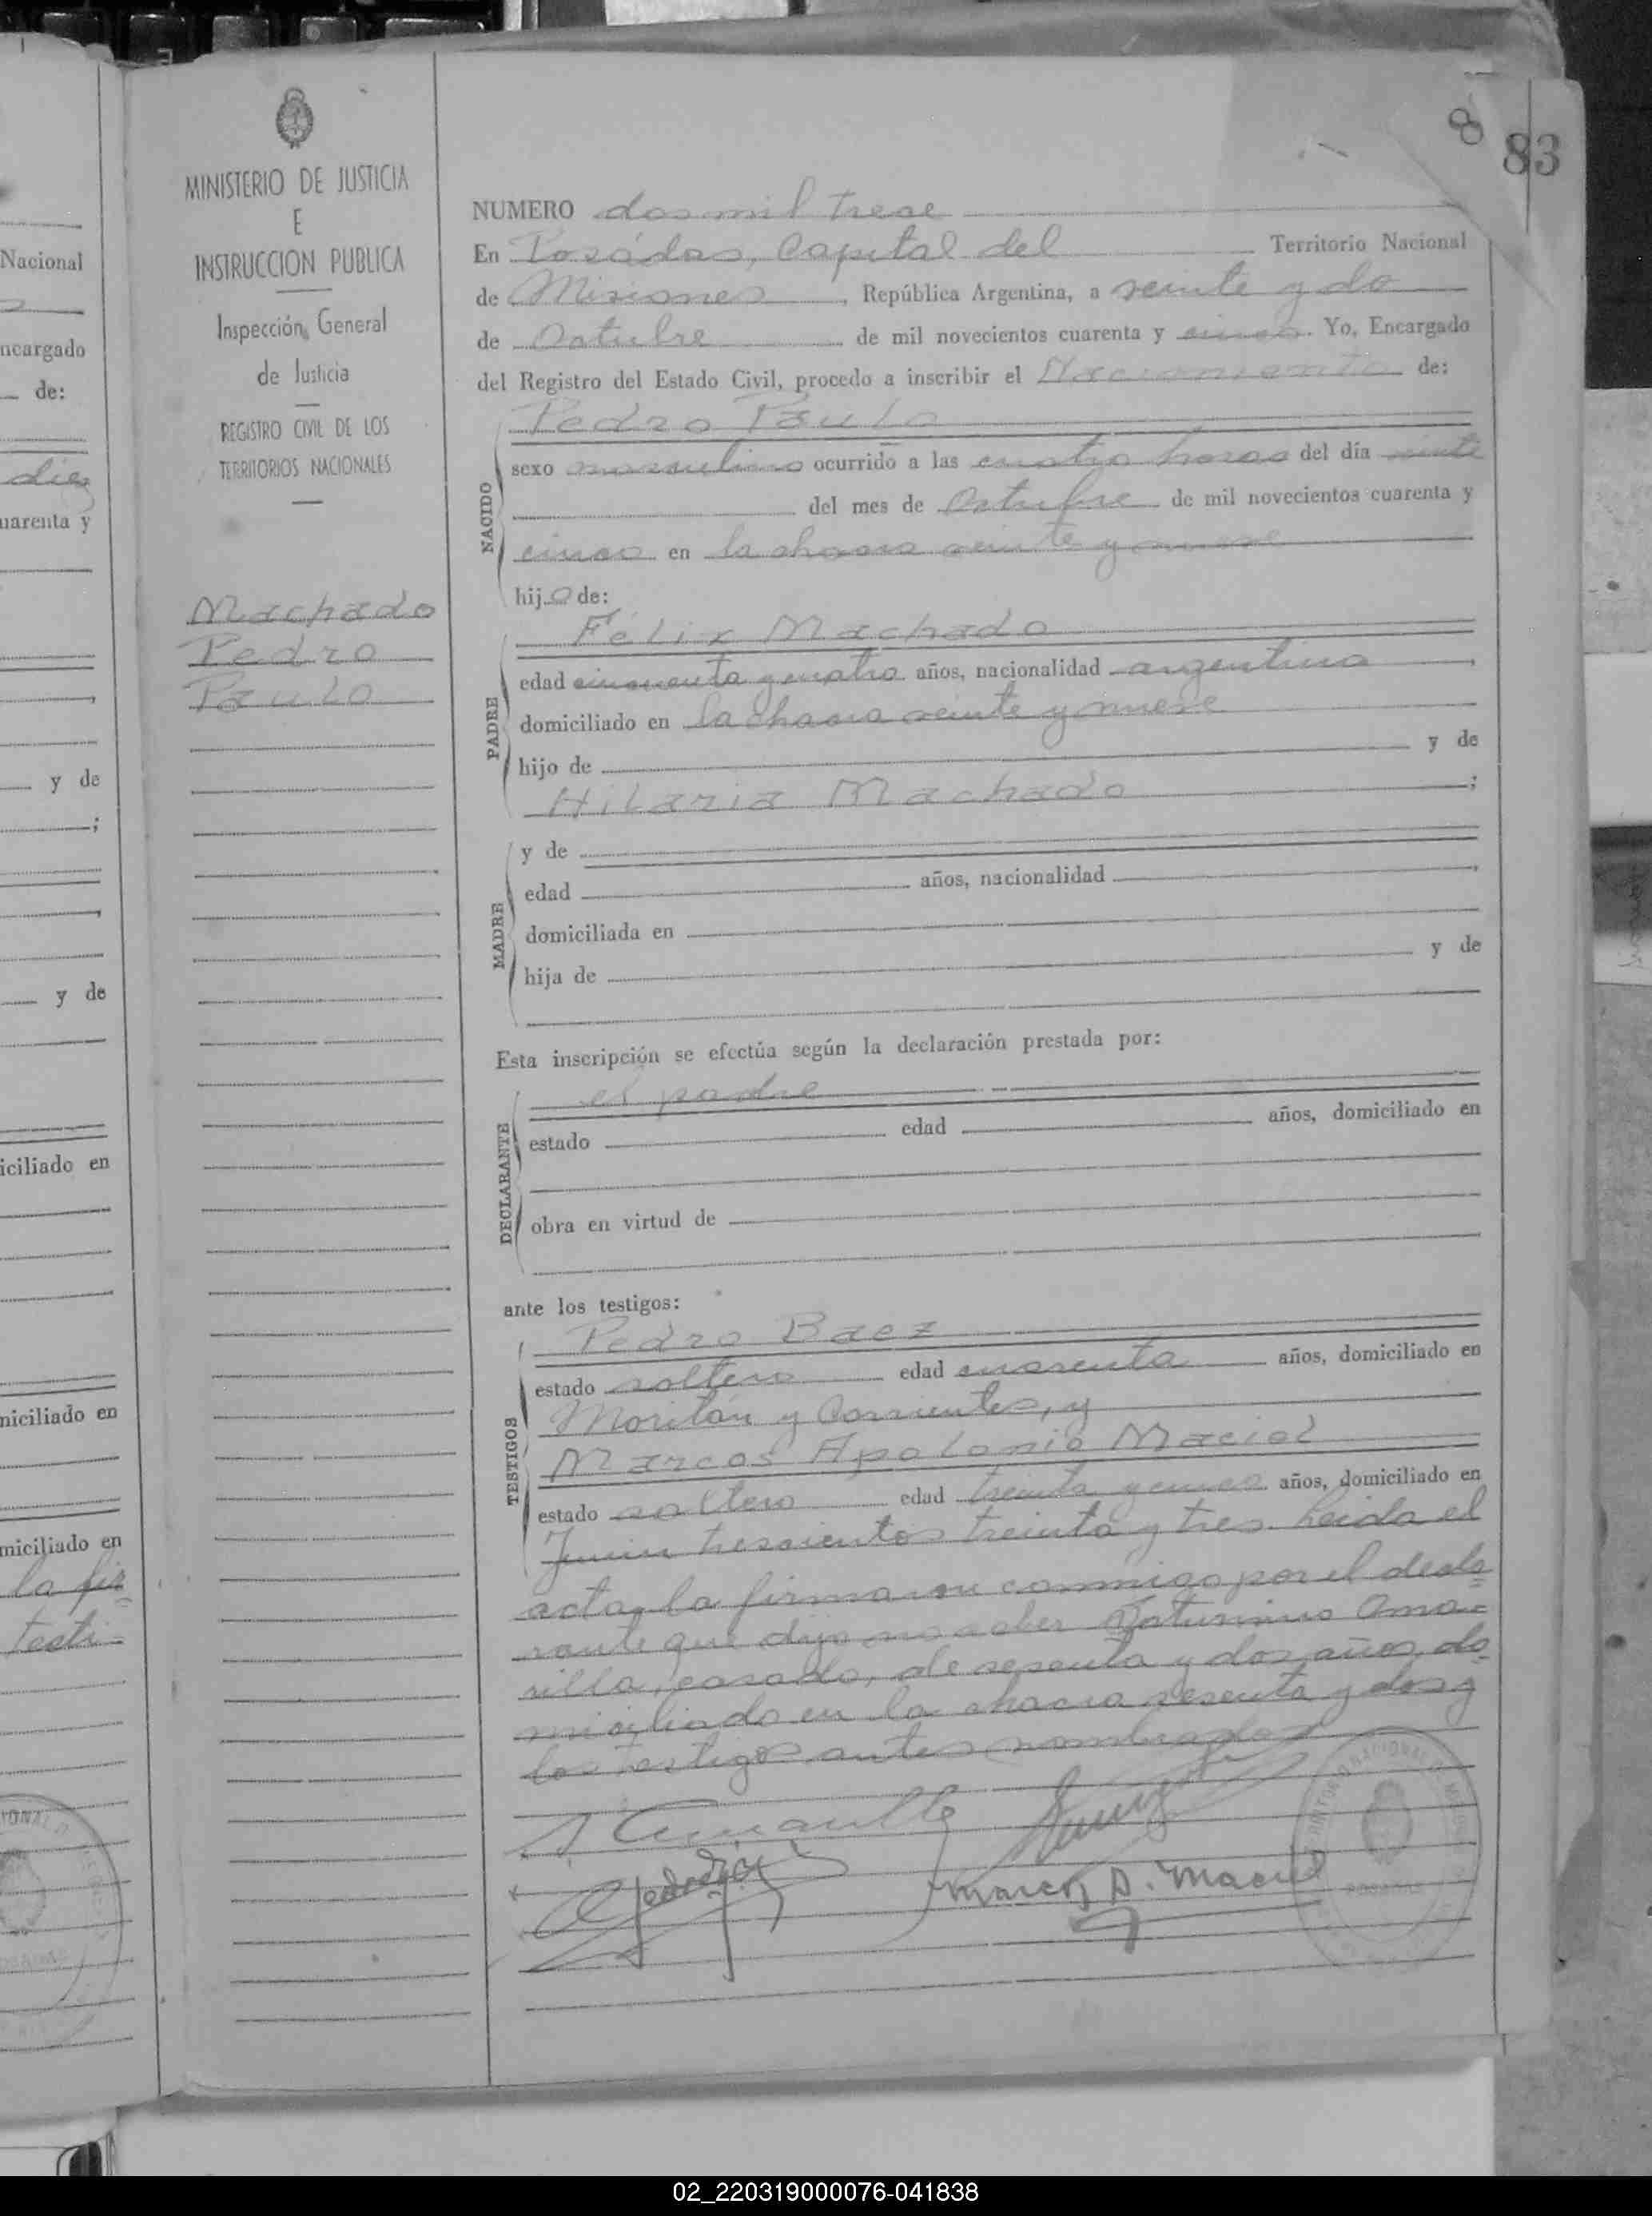 8
83
MINISTERIO DE JUSTICIA
E
INSTRUCCION PUBLICA
Inspección General
de Justicia
REGISTRO CIVIL DE LOS
TERRITORIOS NACIONALES
Machado
Pedro
Paulo
NUMERO dos mil trece
En Posadas, Capital del Territorio Nacional
de Misiones, República Argentina, a veinte y do
de Octubre de mil novecientos cuarenta y cinco. Yo, Encargado
del Registro del Estado Civil, procedo a inscribir el Nacimiento de:
NACIDO
Pedro Paulo
sexo masculino ocurrido a las cuatro horas del día veinte
del mes de Octubre de mil novecientos cuarenta y
cinco en la chacra veinte y nueve
hijo de:
PADRE
Félix Machado
edad cincuenta y cuatro años, nacionalidad argentina,
domiciliado en la chacra veinte y nueve
hijo de y de
Hilaria Machado;
MADRE
y de
edad años, nacionalidad,
domiciliada en
hija de y de
Esta inscripción se efectúa según la declaración prestada por:
DECLARANTE
el padre
estado edad años, domiciliado en
obra en virtud de
ante los testigos:
TESTIGOS
Pedro Baez
estado soltero edad cuarenta años, domiciliado en
Moritán y Corrientes, y
Marcos Apolonio Maciel
estado soltero edad treinta y cinco años, domiciliado en
Junin trescientos treinta y tres. Leida el
acta, la firmaron conmigo por el decla=
rante que dijo no saber Saturnino Ama=
rilla, casado, de sesenta y dos años, do=
miciliado en la chacra sesenta y dos y
los testigos antes nombrados
S. Amarilla
Marcos A. Maciel
Nacional
ncargado
de:
diez
uarenta y
y de
;
y de
iciliado en
niciliado en
miciliado en
la fir=
testi=
02_220319000076-041838